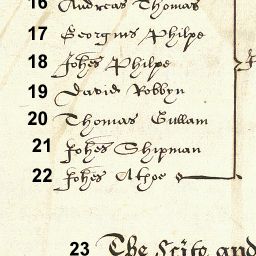 16 Andreas Thomas
17 Georgius Philpe
18 Johes Philpe
19 David Robbyn
20 Thomas Gullam
21 Johes Shipman
22 Johes Athoe
23 The Scite and